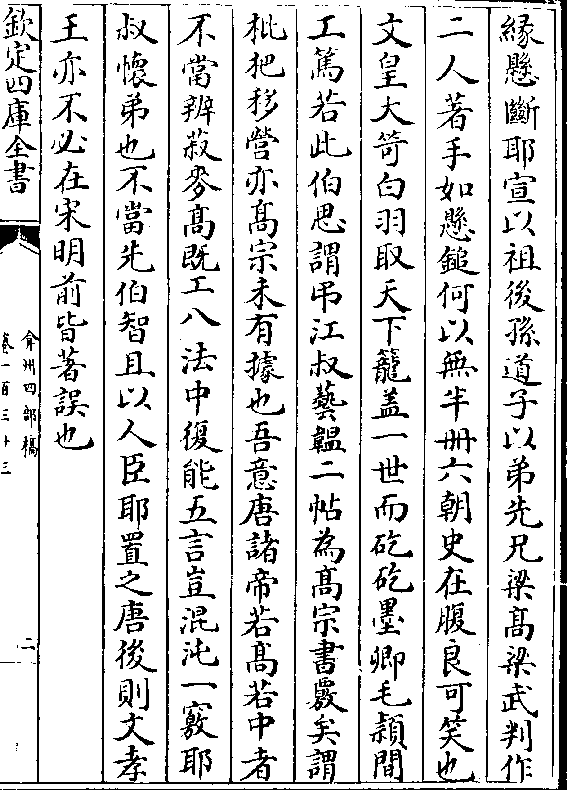 縁懸斷耶宣以祖後孫道子以弟先兄梁髙梁武判作
二人著手如懸鎚何以無半冊六朝史在腹良可笑也
文皇大笴白羽取天下籠盖一世而矻矻墨卿毛頴間
工篤若此伯思謂弔江叔藝韞二帖為髙宗書覈矣謂
枇杷移營亦髙宗未有據也吾意唐諸帝若髙若中者
不當辨菽麥髙既工八法中復能五言豈混沌一竅耶
叔懷弟也不當先伯智且以人臣耶置之唐後則文孝
王亦不必在宋明前皆著誤也
欽定四庫全書
弇州四部稿
卷一百三十三
二